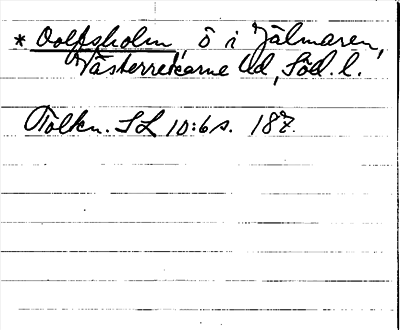 * Oolfsholm, ö i Hjälmaren,
Västerrekarne hd, Söd. l.
Tolkn. SL 10:6 s. 187.